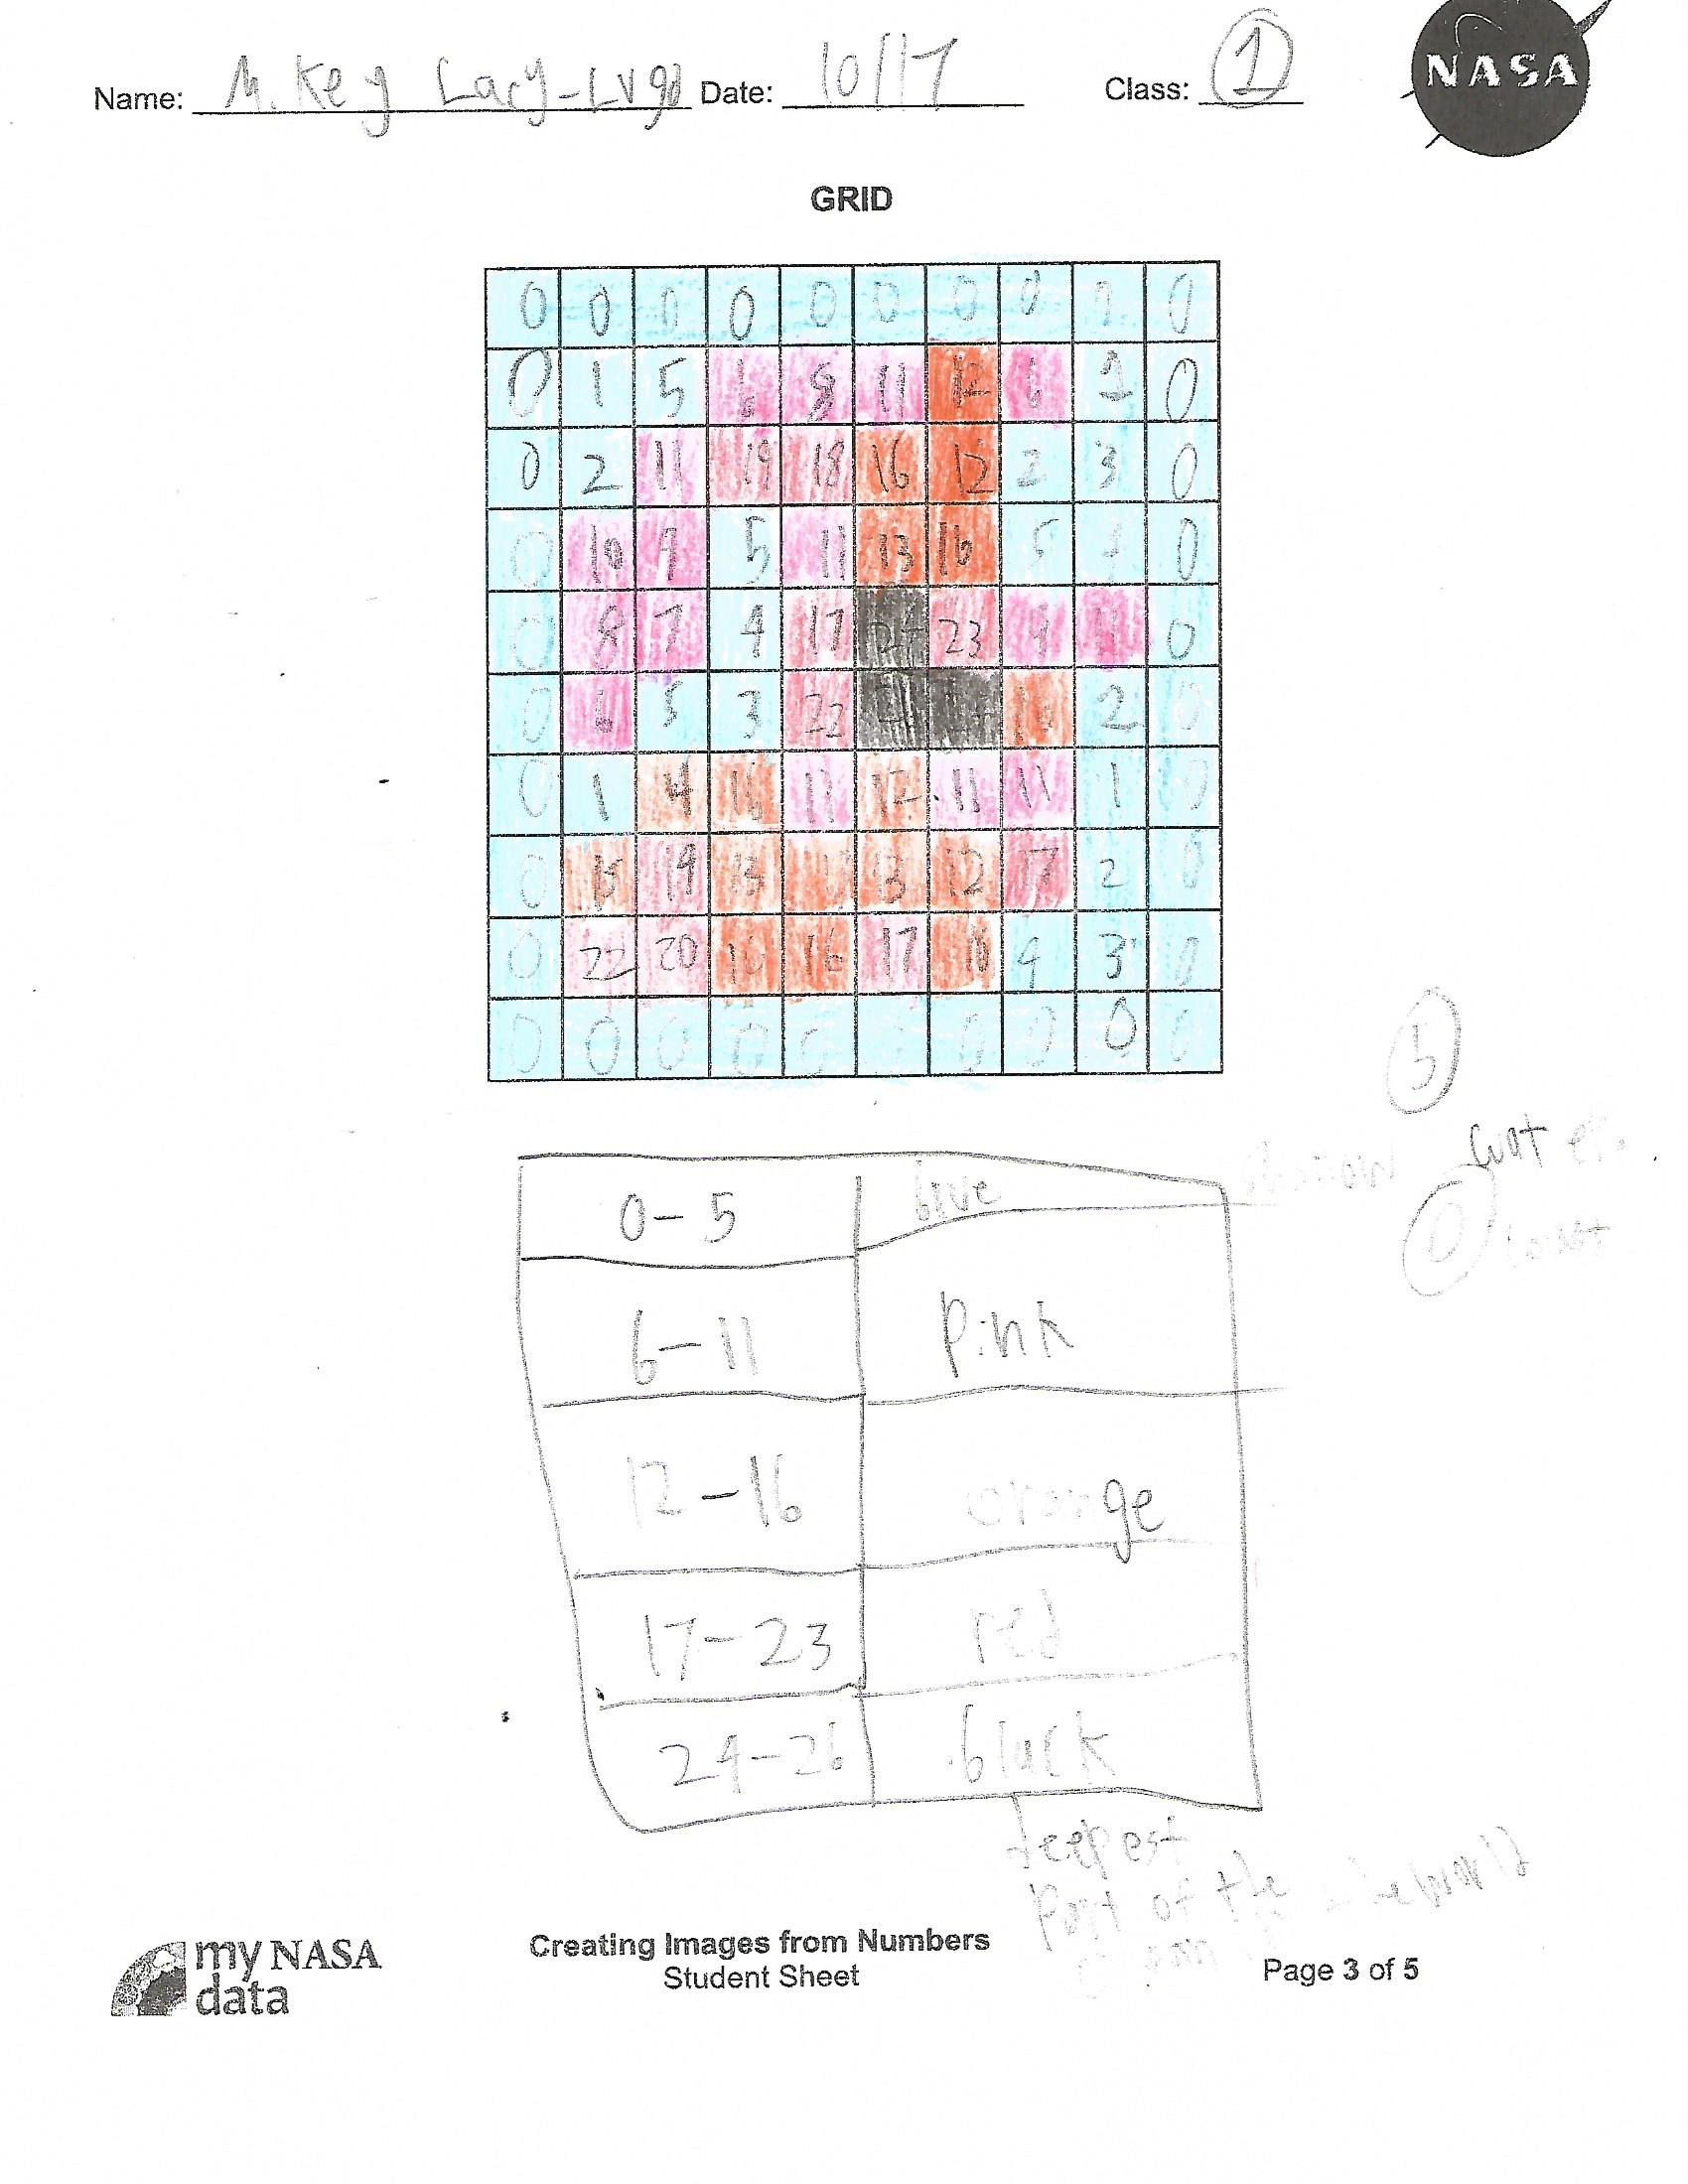 NASA
Name: Mikey Lacy-Lugo Date: 10/17 Class: 1
GRID
0 0 0 0 0 0 0 0 0
0 1 5 6 8 11 12 6 0
0 2 11 19 18 16 12 2 3 0
0 10 9 5 11 13 16 5 0
0 8 7 4 17 23 9 0
0 6 5 3 22 2 0
0 1 16 11 12 11 11 1 0
0 15 19 13 13 12 17 2 0
0 22 20 16 16 17 4 3 0
0 0 0 0 0 0 0 0 0
0-5 blue
6-11 pink
12-16 orange
17-23 red
24-26 black
deepest
part of the
my NASA
data
Creating Images from Numbers
Student Sheet
Page 3 of 5